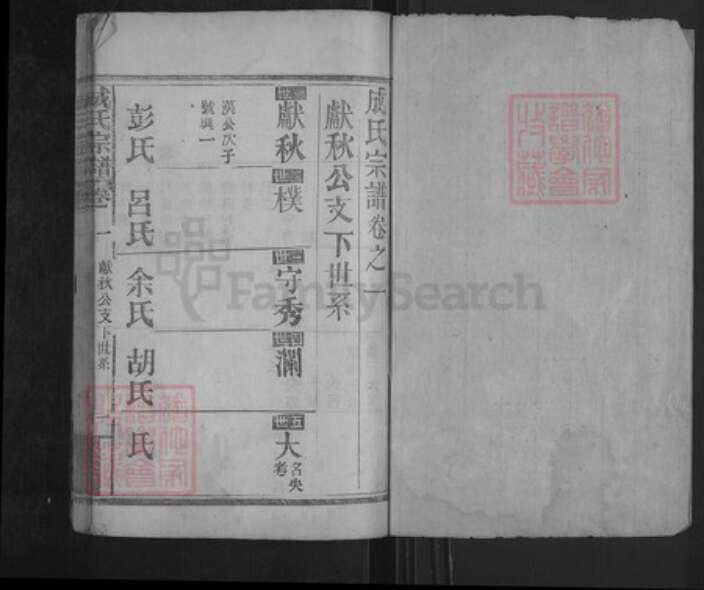 成氏宗譜卷之一
獻秋公支下世系
一世 獻秋
漢公次子
號興一
彭氏
二世 樸
呂氏
三世 守秀
余氏
四世 瀾
胡氏
五世 大
名失
考
氏
成氏宗譜 卷一
獻秋公支下世系
一
FamilySearch